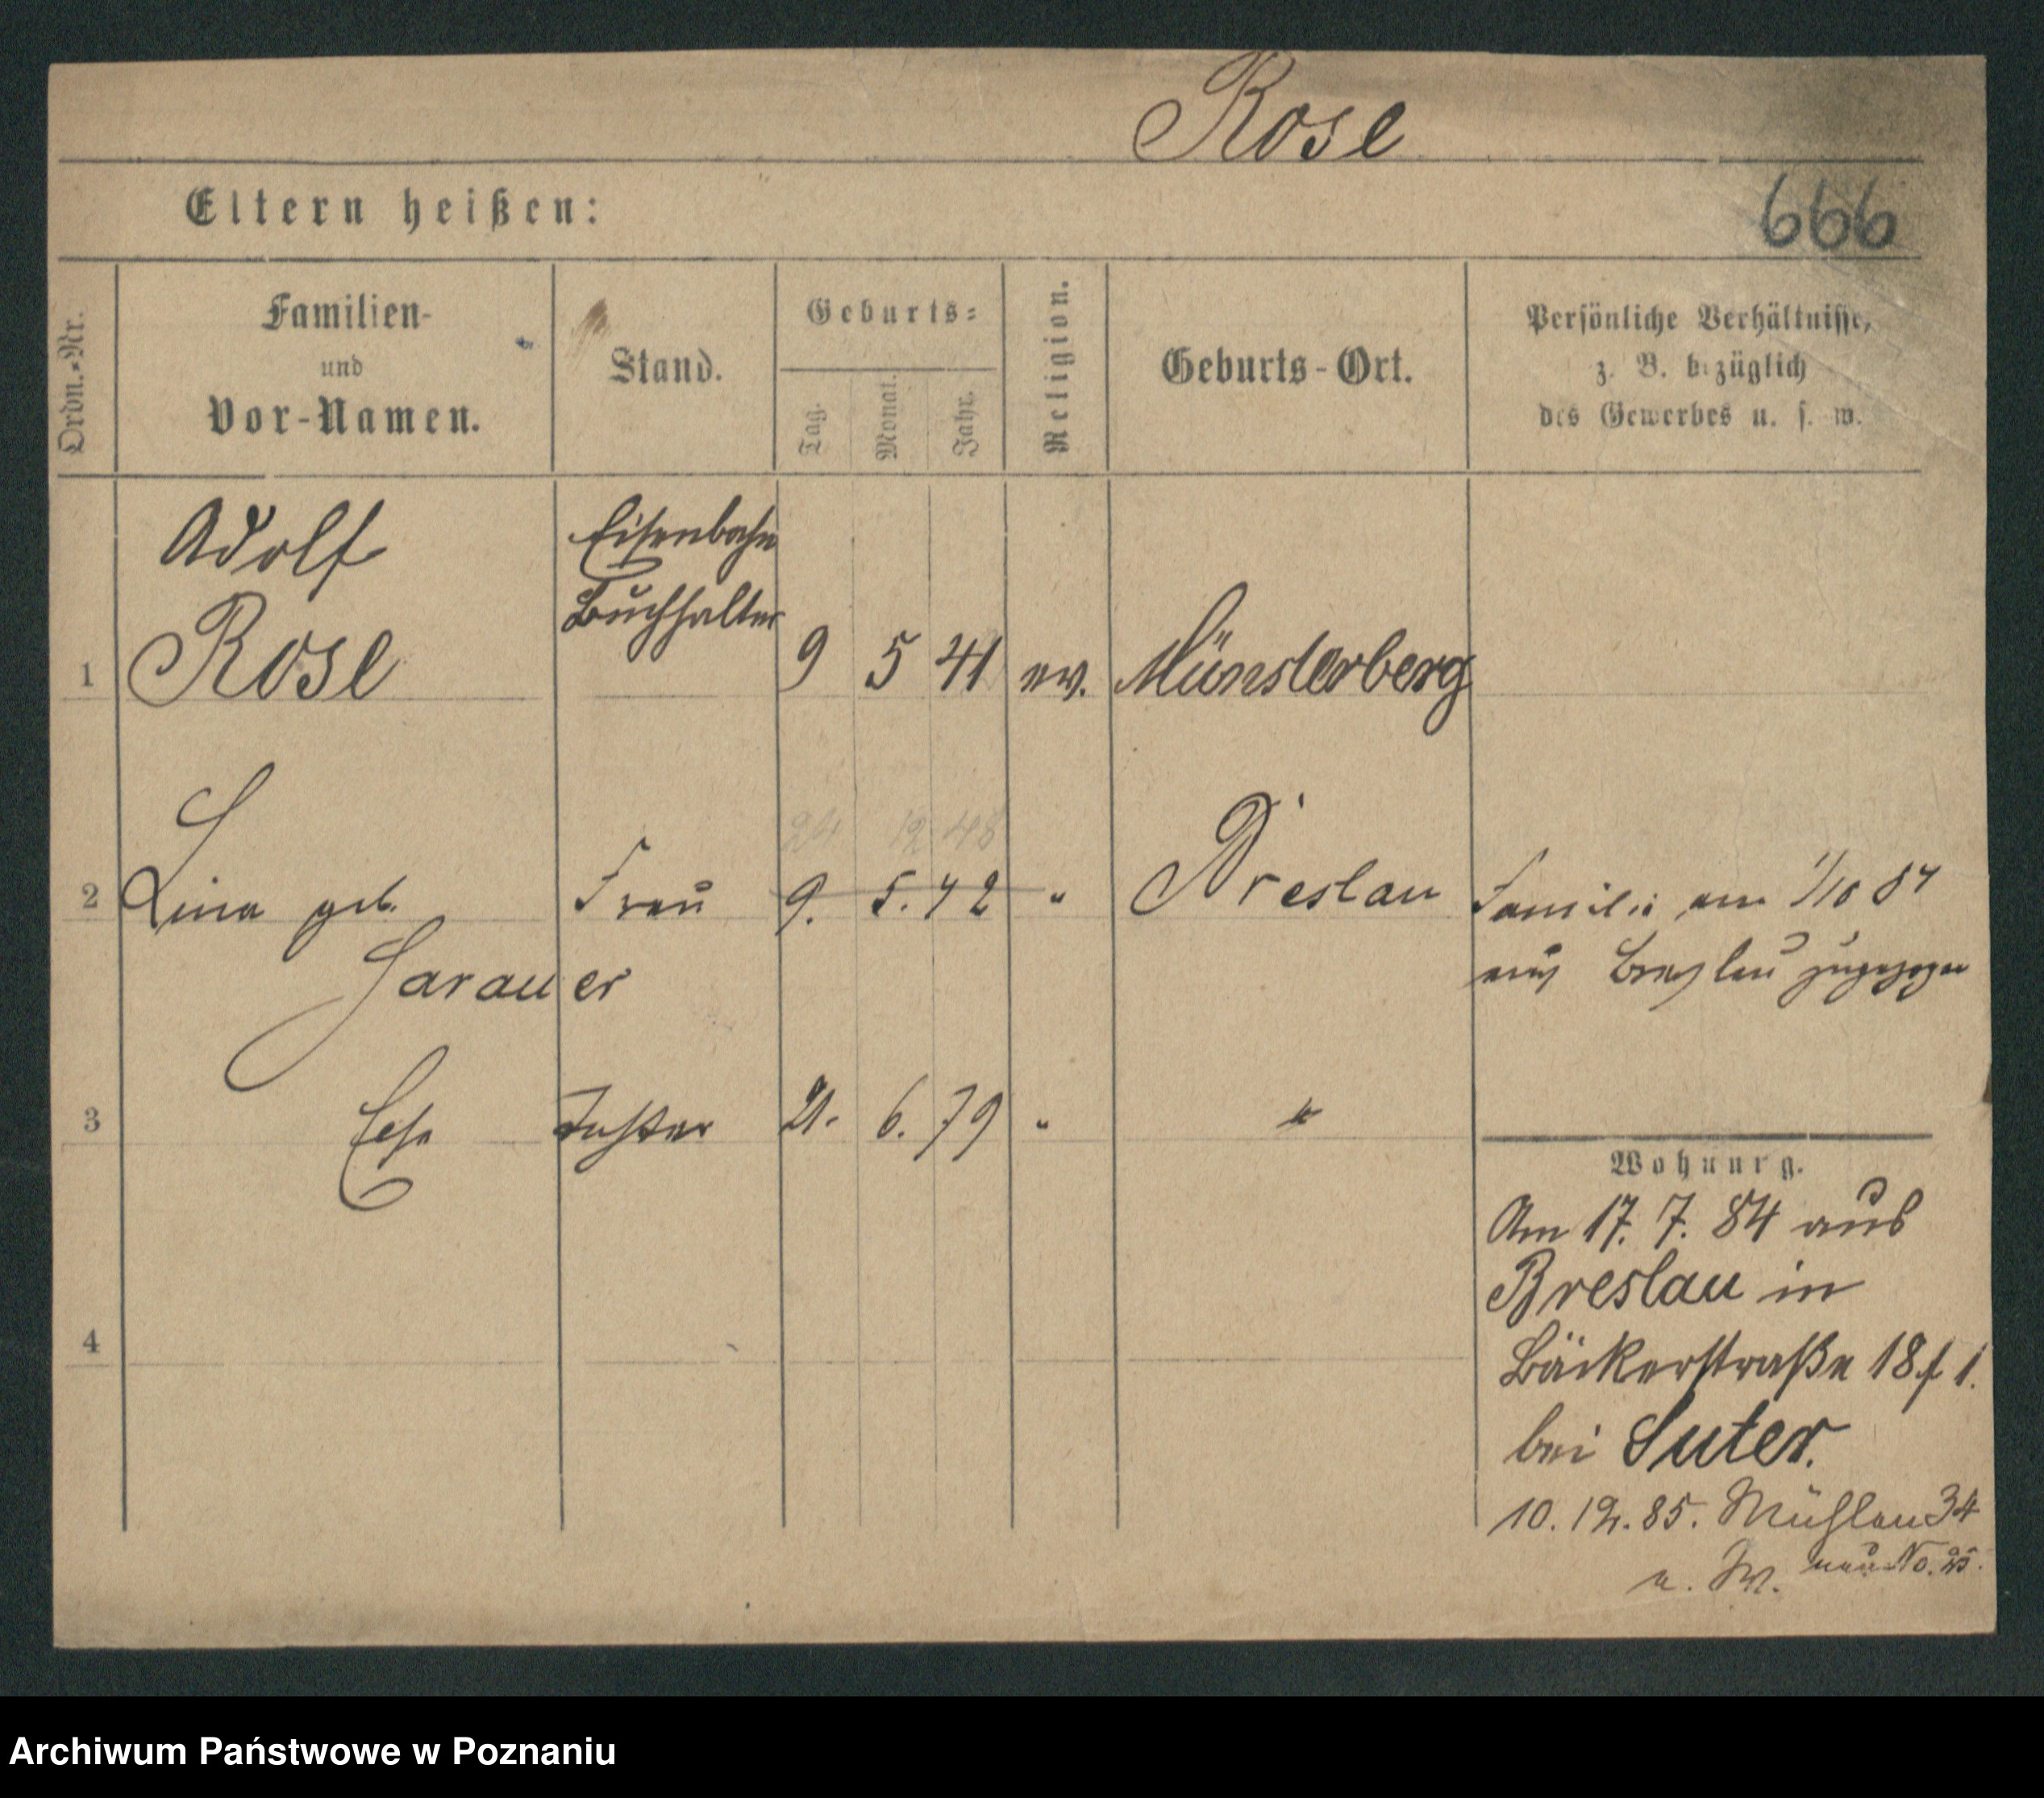 Rose
Eltern heißen:
666
Ordn.-Nr.
Familien-
und
Vor-Namen.
Stand.
Geburts-
Tag.
Monat.
Jahr.
Religion.
Geburts-Ort.
Persönliche Verhältnisse,
z. B. bezüglich
des Gewerbes u. s. w.
Adolf
Eisenbahn
Buchhalter
1 Rose 9 5 41 ev. Münsterberg
24 12 48
2 Lina geb. Frau 9. 5. 42 " Breslau Familie am 1/10 84
aus Breslau zugezogen
Sarauer
3 Tochter 21. 6. 79 " "
Wohnung.
Am 17. 7. 84 aus
Breslau in
4
Bäckerstraße 18 f 1.
bei Suter.
10. 12. 85. Mühlen 34
neu No. 25.